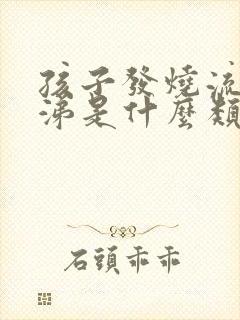 孩子發燒流
涕是什麼類
石頭乖乖